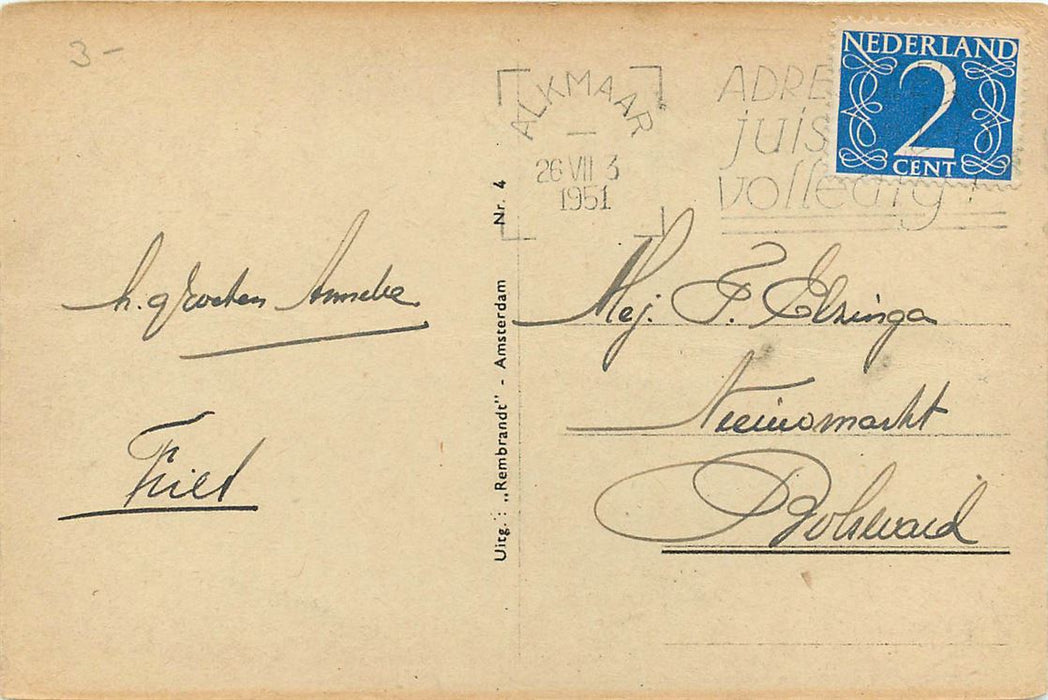 3-
ALKMAAR
26 VII 3
1951
ADRE
juis
volledig!
NEDERLAND
2
CENT
h. groeten Anneke
Uitg.: „Rembrandt" - Amsterdam Nr. 4
Mej. F. Elzinga
Nieuwmarkt
Bolsward